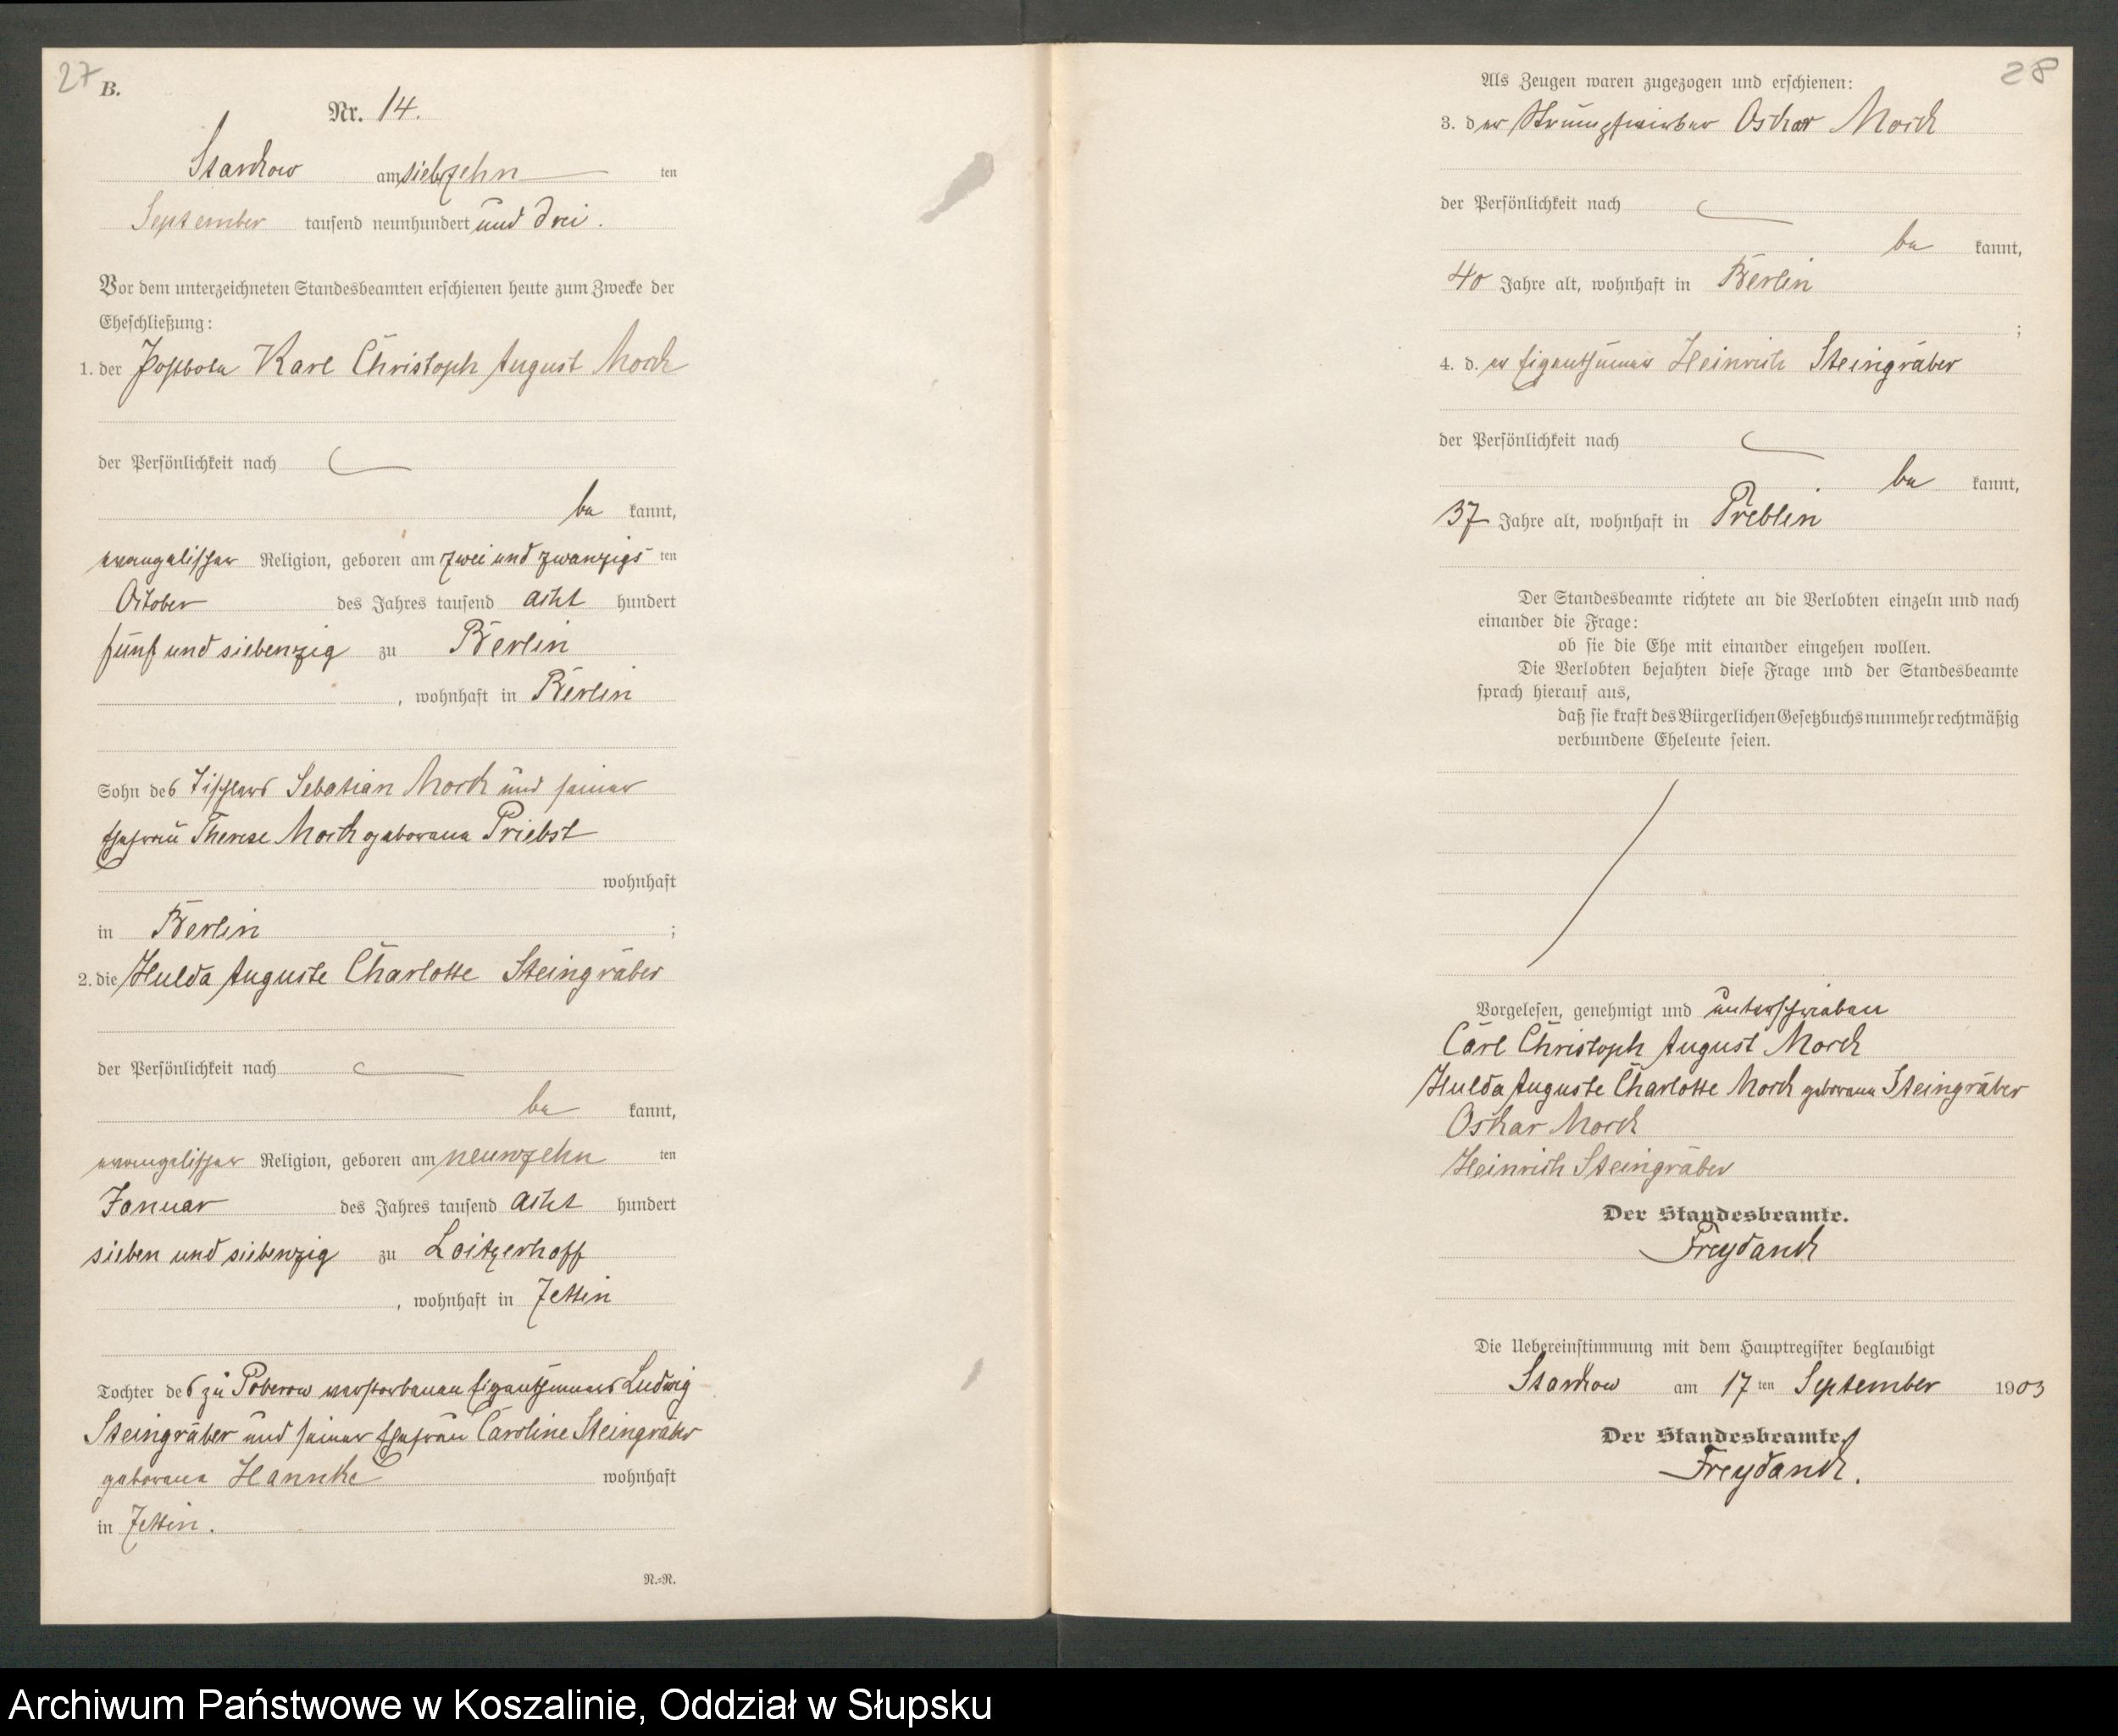 27
B.
Nr. 14.
Starkow am siebzehn ten
September tausend neunhundert und drei.
Vor dem unterzeichneten Standesbeamten erschienen heute zum Zwecke der
Eheschließung:
1. der Postbote Karl Christoph August Morck
der Persönlichkeit nach
be kannt,
evangelischer Religion, geboren am zwei und zwanzigs ten
October des Jahres tausend acht hundert
fünf und siebenzig zu Berlin
, wohnhaft in Berlin
Sohn des Tischlers Sebatian Morck und seiner
Ehefrau Therese Morck geborene Priebst
wohnhaft
in Berlin ;
2. die Hulda Auguste Charlotte Steingräber
der Persönlichkeit nach
be kannt,
evangelischer Religion, geboren am neunzehn ten
Januar des Jahres tausend acht hundert
sieben und siebenzig zu Loitzerhoff
, wohnhaft in Jettin
Tochter des zu Poberow verstorbenen Eigenthümers Ludwig
Steingräber und seiner Ehefrau Caroline Steingräber
geborene Hannke wohnhaft
in Jettin.
N.=N.
28
Als Zeugen waren zugezogen und erschienen:
3. der Oskar Morck
der Persönlichkeit nach
be kannt,
40 Jahre alt, wohnhaft in Berlin
;
4. d. er Eigenthümer Heinrich Steingräber
der Persönlichkeit nach
be kannt,
37 Jahre alt, wohnhaft in Preblin
Der Standesbeamte richtete an die Verlobten einzeln und nach
einander die Frage:
ob sie die Ehe mit einander eingehen wollen.
Die Verlobten bejahten diese Frage und der Standesbeamte
sprach hierauf aus,
daß sie kraft des Bürgerlichen Gesetzbuchs nunmehr rechtmäßig
verbundene Eheleute seien.
Vorgelesen, genehmigt und unterschrieben
Carl Christoph August Morck
Hulda Auguste Charlotte Morck geborene Steingräber
Oskar Morck
Heinrich Steingräber
Der Standesbeamte.
Freydanck
Die Uebereinstimmung mit dem Hauptregister beglaubigt
Starkow am 17 ten September 1903
Der Standesbeamte.
Freydanck.
Archiwum Państwowe w Koszalinie, Oddział w Słupsku